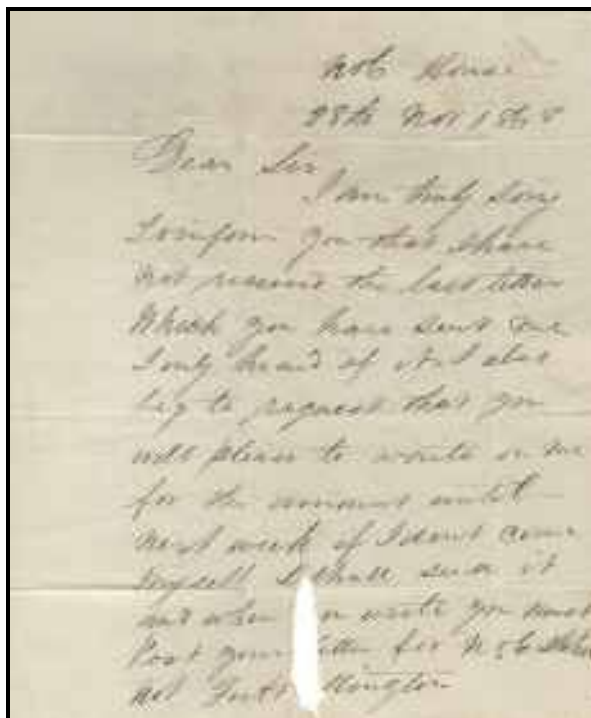 28th Nov 186
Dear Sir
I am truly sorry
to inform you that I have
not received the last letter
which you have sent me
I only heard of it I also
beg to request that you
will please to waite on me
for the amount until
next week if I dont come
myself I shall send it
and when you write you must
Post your letter for
not